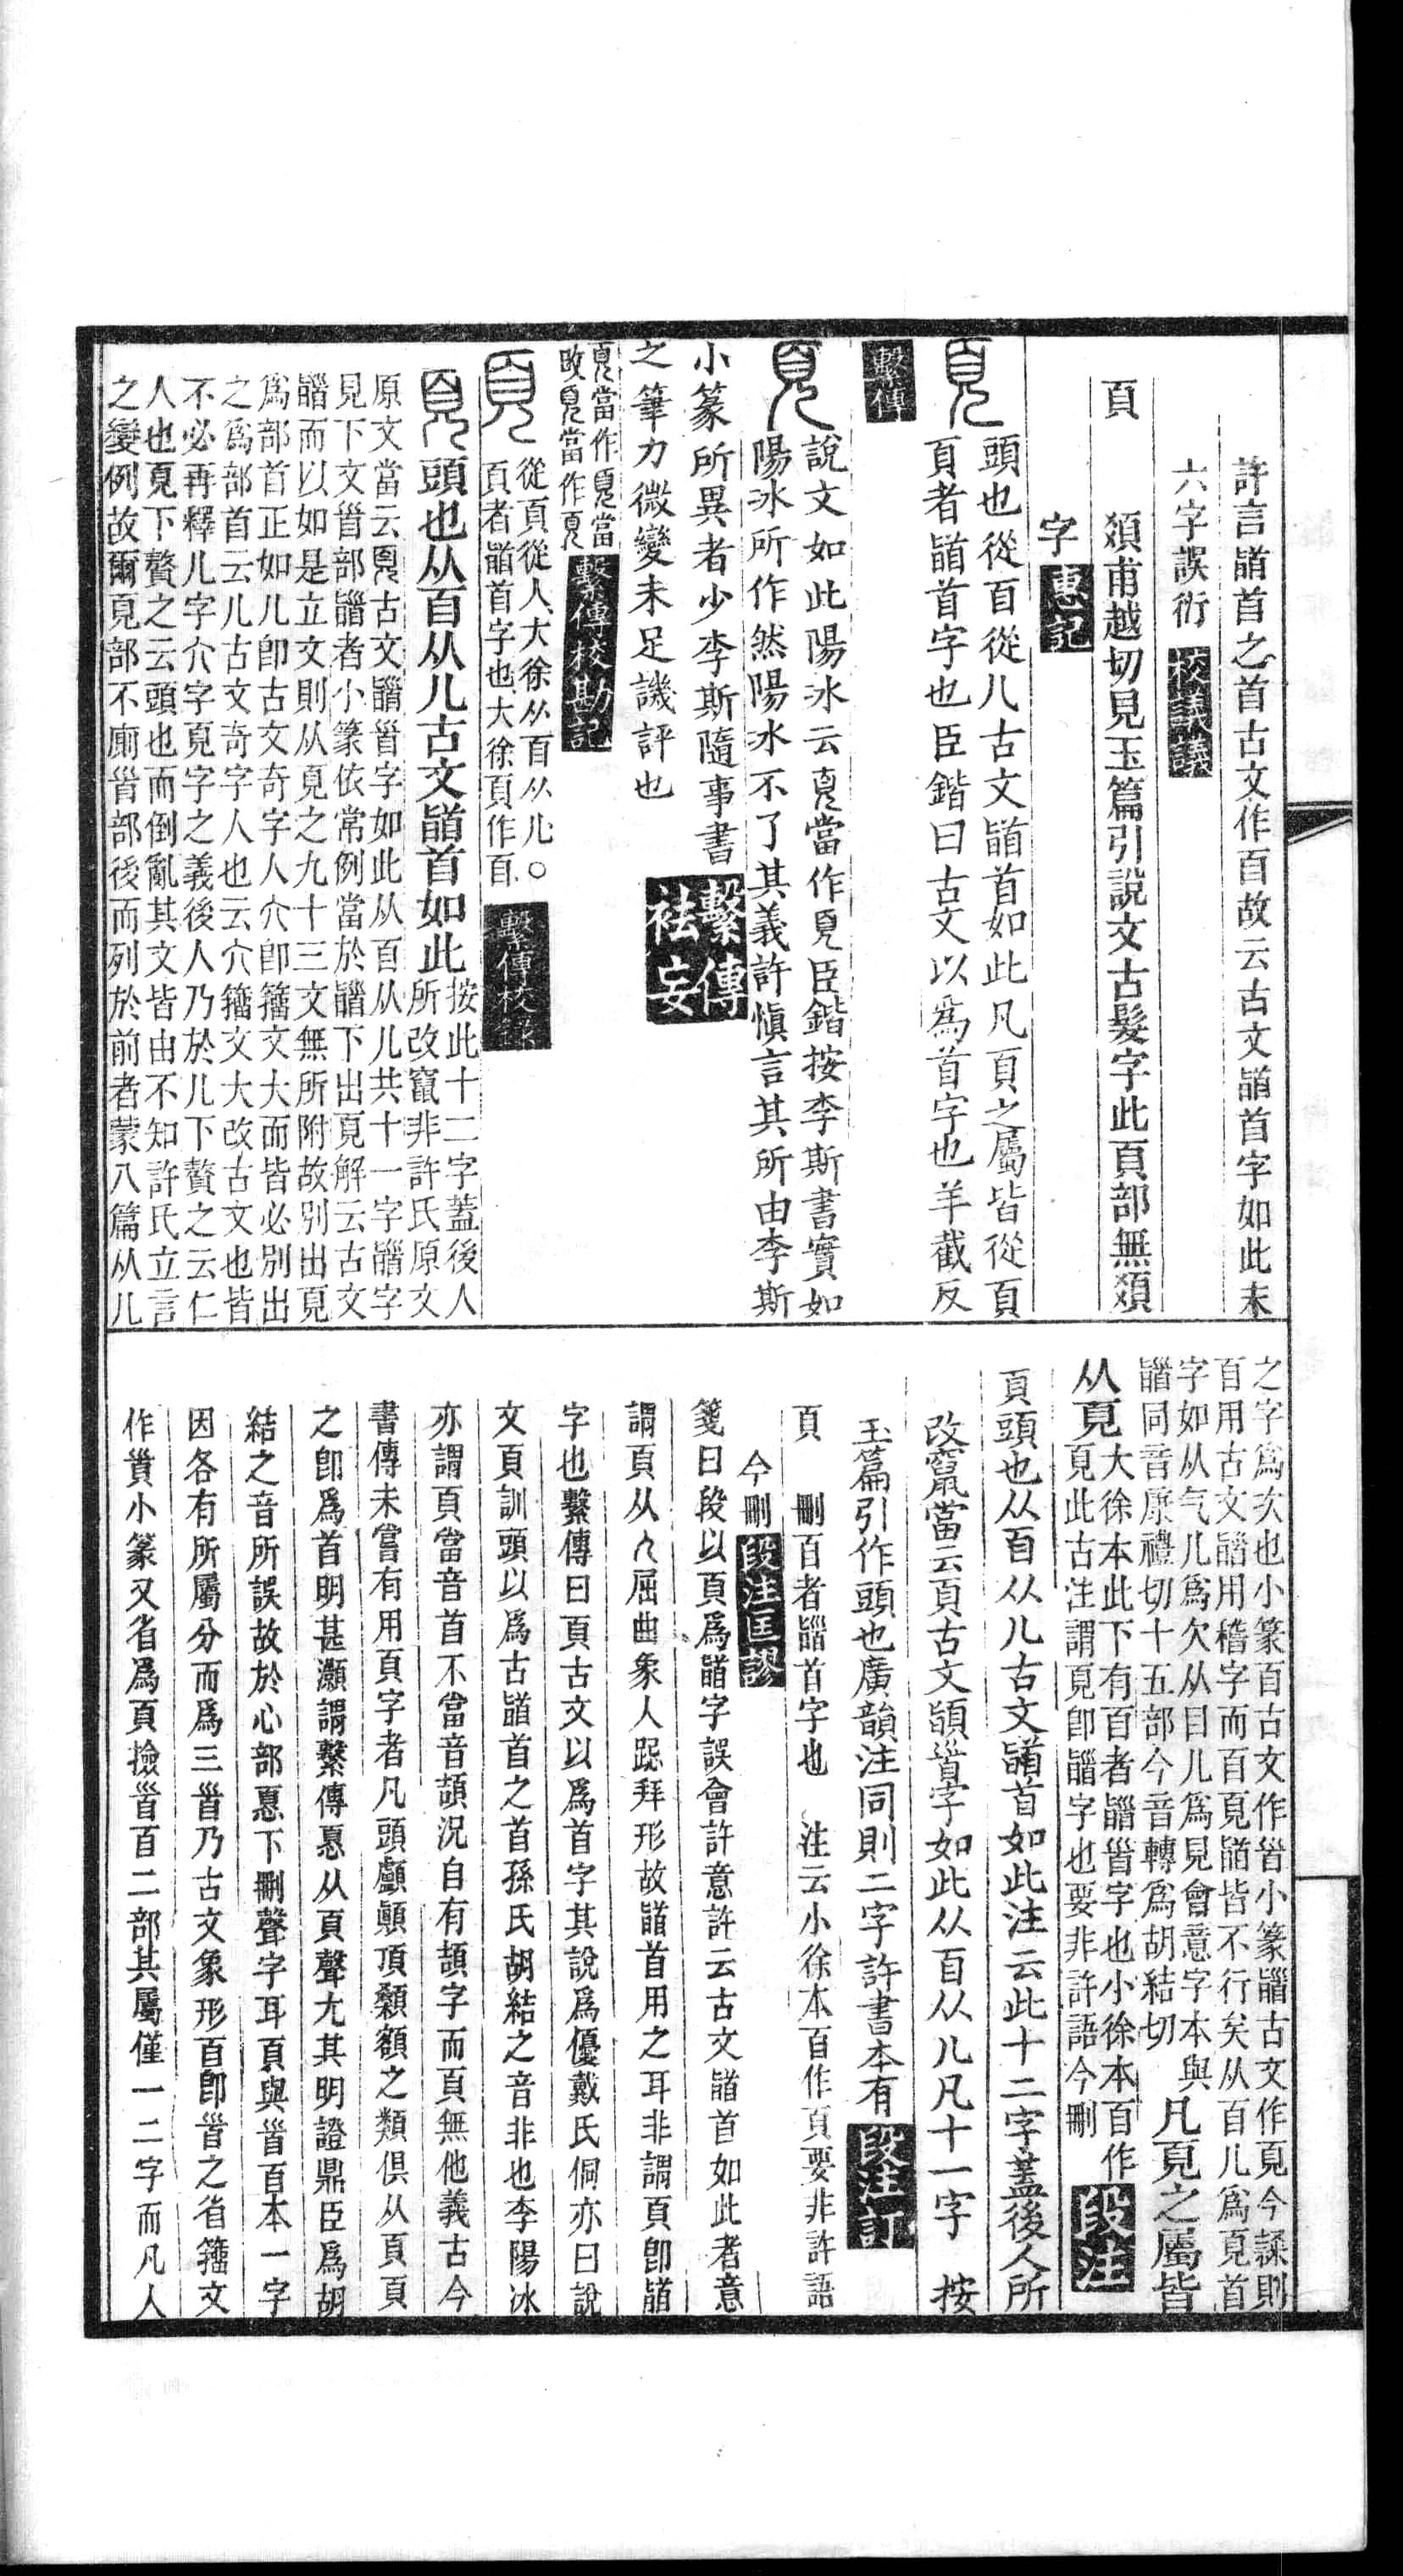 許言䭫首之首古文作𦣻故云古文䭫首字如此末
六字誤衍 校議議
頁
䫙甫越切見玉篇引說文古髮字此頁部無䫙
字 惠記
頭也從𦣻從儿古文䭫首如此凡頁之屬皆從頁
頁者䭫首字也臣鍇曰古文以爲首字也羊截反
繫傳
說文如此陽冰云𩑋當作𥄎臣鍇按李斯書實如
陽冰所作然陽冰不了其義許愼言其所由李斯
小篆所異者少李斯隨事書
之筆力微變未足譏評也
繫傳
袪妄
當作當
改當作
繫傳校勘記
從頁從人大徐从𦣻从儿○
頁者䭫首字也大徐頁作𦣻
繫傳校錄
頭也从𦣻从儿古文䭫首如此
按此十二字蓋後人
所改竄非許氏原文
原文當云𩑋古文䭫𩠐字如此从𦣻从儿共十一字䭫字
見下文𩠐部䭫者小篆依常例當於䭫下出𩑋解云古文
䭫而以如是立文則从𩑋之九十三文無所附故別出𩑋
爲部首正如儿卽古文奇字人𠘲卽籒文大而皆必別出
之爲部首云儿古文奇字人也云𠘲籒文大改古文也皆
不必再釋儿字𠘲字𩑋字之義後人乃於儿下贅之云仁
人也𩑋下贅之云頭也而倒亂其文皆由不知許氏立言
之變例故爾𩑋部不廁𩠐部後而列於前者蒙八篇从儿
之字爲次也小篆𦣻古文作𩠐小篆䭫古文作𩑋今隸則
𦣻用古文䭫用稽字而𦣻𩑋䭫皆不行矣从𦣻儿爲𩑋首
字如从气儿爲欠从目儿爲見會意字本與
䭫同音康禮切十五部今音轉爲胡結切
凡𩑋之屬皆
从𩑋
大徐本此下有𦣻者䭫𩠐字也小徐本𦣻作
𩑋此古注謂𩑋卽䭫字也要非許語今刪
段注
頁頭也从𦣻从儿古文䭫首如此注云此十二字蓋後人所
改竄當云頁古文䭫𩠐字如此从𦣻从儿凡十一字 按
玉篇引作頭也廣韻注同則二字許書本有 段注訂
頁 刪𦣻者䭫首字也 注云小徐本𦣻作頁要非許語
今刪 段注匡謬
箋曰段以頁爲䭫字誤會許意許云古文䭫首如此者意
謂頁从儿屈曲象人跽拜形故䭫首用之耳非謂頁卽䭫
字也繫傳曰頁古文以爲首字其說爲優戴氏侗亦曰說
文頁訓頭以爲古䭫首之首孫氏胡結之音非也李陽冰
亦謂頁當音首不當音頡況自有頡字而頁無他義古今
書傳未嘗有用頁字者凡頭顱顚頂顙額之類俱从頁頁
之卽爲首明甚灝謂繫傳𢝊从頁聲尤其明證鼎臣爲胡
結之音所誤故於心部𢝊下刪聲字耳頁與𩠐𦣻本一字
因各有所屬分而爲三𩠐乃古文象形𦣻卽𩠐之省籒文
作𩔁小篆又省爲頁撿𩠐𦣻二部其屬僅一二字而凡人